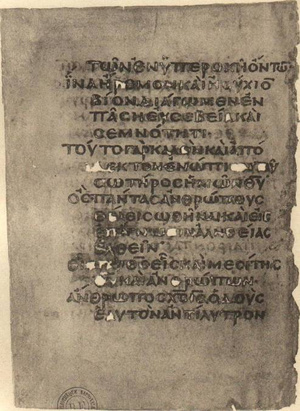 ΤΩΝΕΝΥΠΕΡΟΧΗΟΝΤΩ
ΙΝΑΗΡΕΜΟΝΚΑΙΗϹΥΧΙΟ
ΒΙΟΝΔΙΑΓΩΜΕΝΕΝ
ΠΑϹΗΕΥϹΕΒΕΙΑΚΑΙ
ϹΕΜΝΟΤΗΤΙ
ΤΟΥΤΟΓΑΡΚΑΛΟΝΚΑΙΑΠΟ
ΔΕΚΤΟΝΕΝΩΠΙΟΝΤΟΥ
ϹΩΤΗΡΟϹΗΜΩΝΘΥ
ΟϹΠΑΝΤΑϹΑΝΘΡΩΠΟΥϹ
ΘΕΛΕΙϹΩΘΗΝΑΙΚΑΙΕΙϹ
ΕΠΙΓΝΩϹΙΝΑΛΗΘΕΙΑϹ
ΕΛΘΕΙΝ
ΕΙϹΚΑΙΜΕϹΙΤΗϹ
ΘΥΚΑΙΑΝΘΡΩΠΩΝ
ΑΝΘΡΩΠΟϹΧϹΙϹΟΔΟΥϹ
ΕΑΥΤΟΝΑΝΤΙΛΥΤΡΟΝ